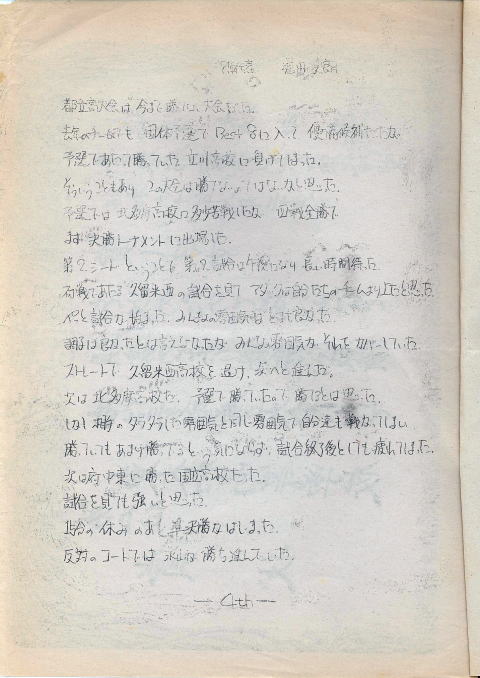 都立高大会は今まで勝ちたい大会だった。
去年のチームでも団体予選でBest8に入って優勝候補だったが
予選であたって勝っていた立川高校に負けてしまった。
そういうこともあり この大会は勝てないようではないかと思った。
予選では北多摩高校に多少苦戦したが 四戦全勝で
まず決勝トーナメントに出場した。
第2シードということも 第2試合は午後になり 長い時間待った。
対戦であたる久留米西の試合を見て アタックは自分たちのチームより上だと思った。
やっと試合が始まった。みんなの雰囲気はとても良かった。
調子は良かったとは言えなかったが みんなの雰囲気が それをカバーしていた。
ストレートで 久留米西高校を退け、次へと進んだ。
次は北多摩高校だ。予選で勝っていたので勝てるとは思った。
しかし 相手のダラダラした雰囲気と同じ雰囲気で自分達も戦ってしまい
勝っていてもあまり勝ってるという気にならず、試合終了後とても疲れてしまった。
次は府中東に勝った国立高校だった。
試合を見ても強いと思った。
15分の休みのあと 準決勝がはじまった。
反対のコートでは 永山が勝ち進んでいた。
— 4th —